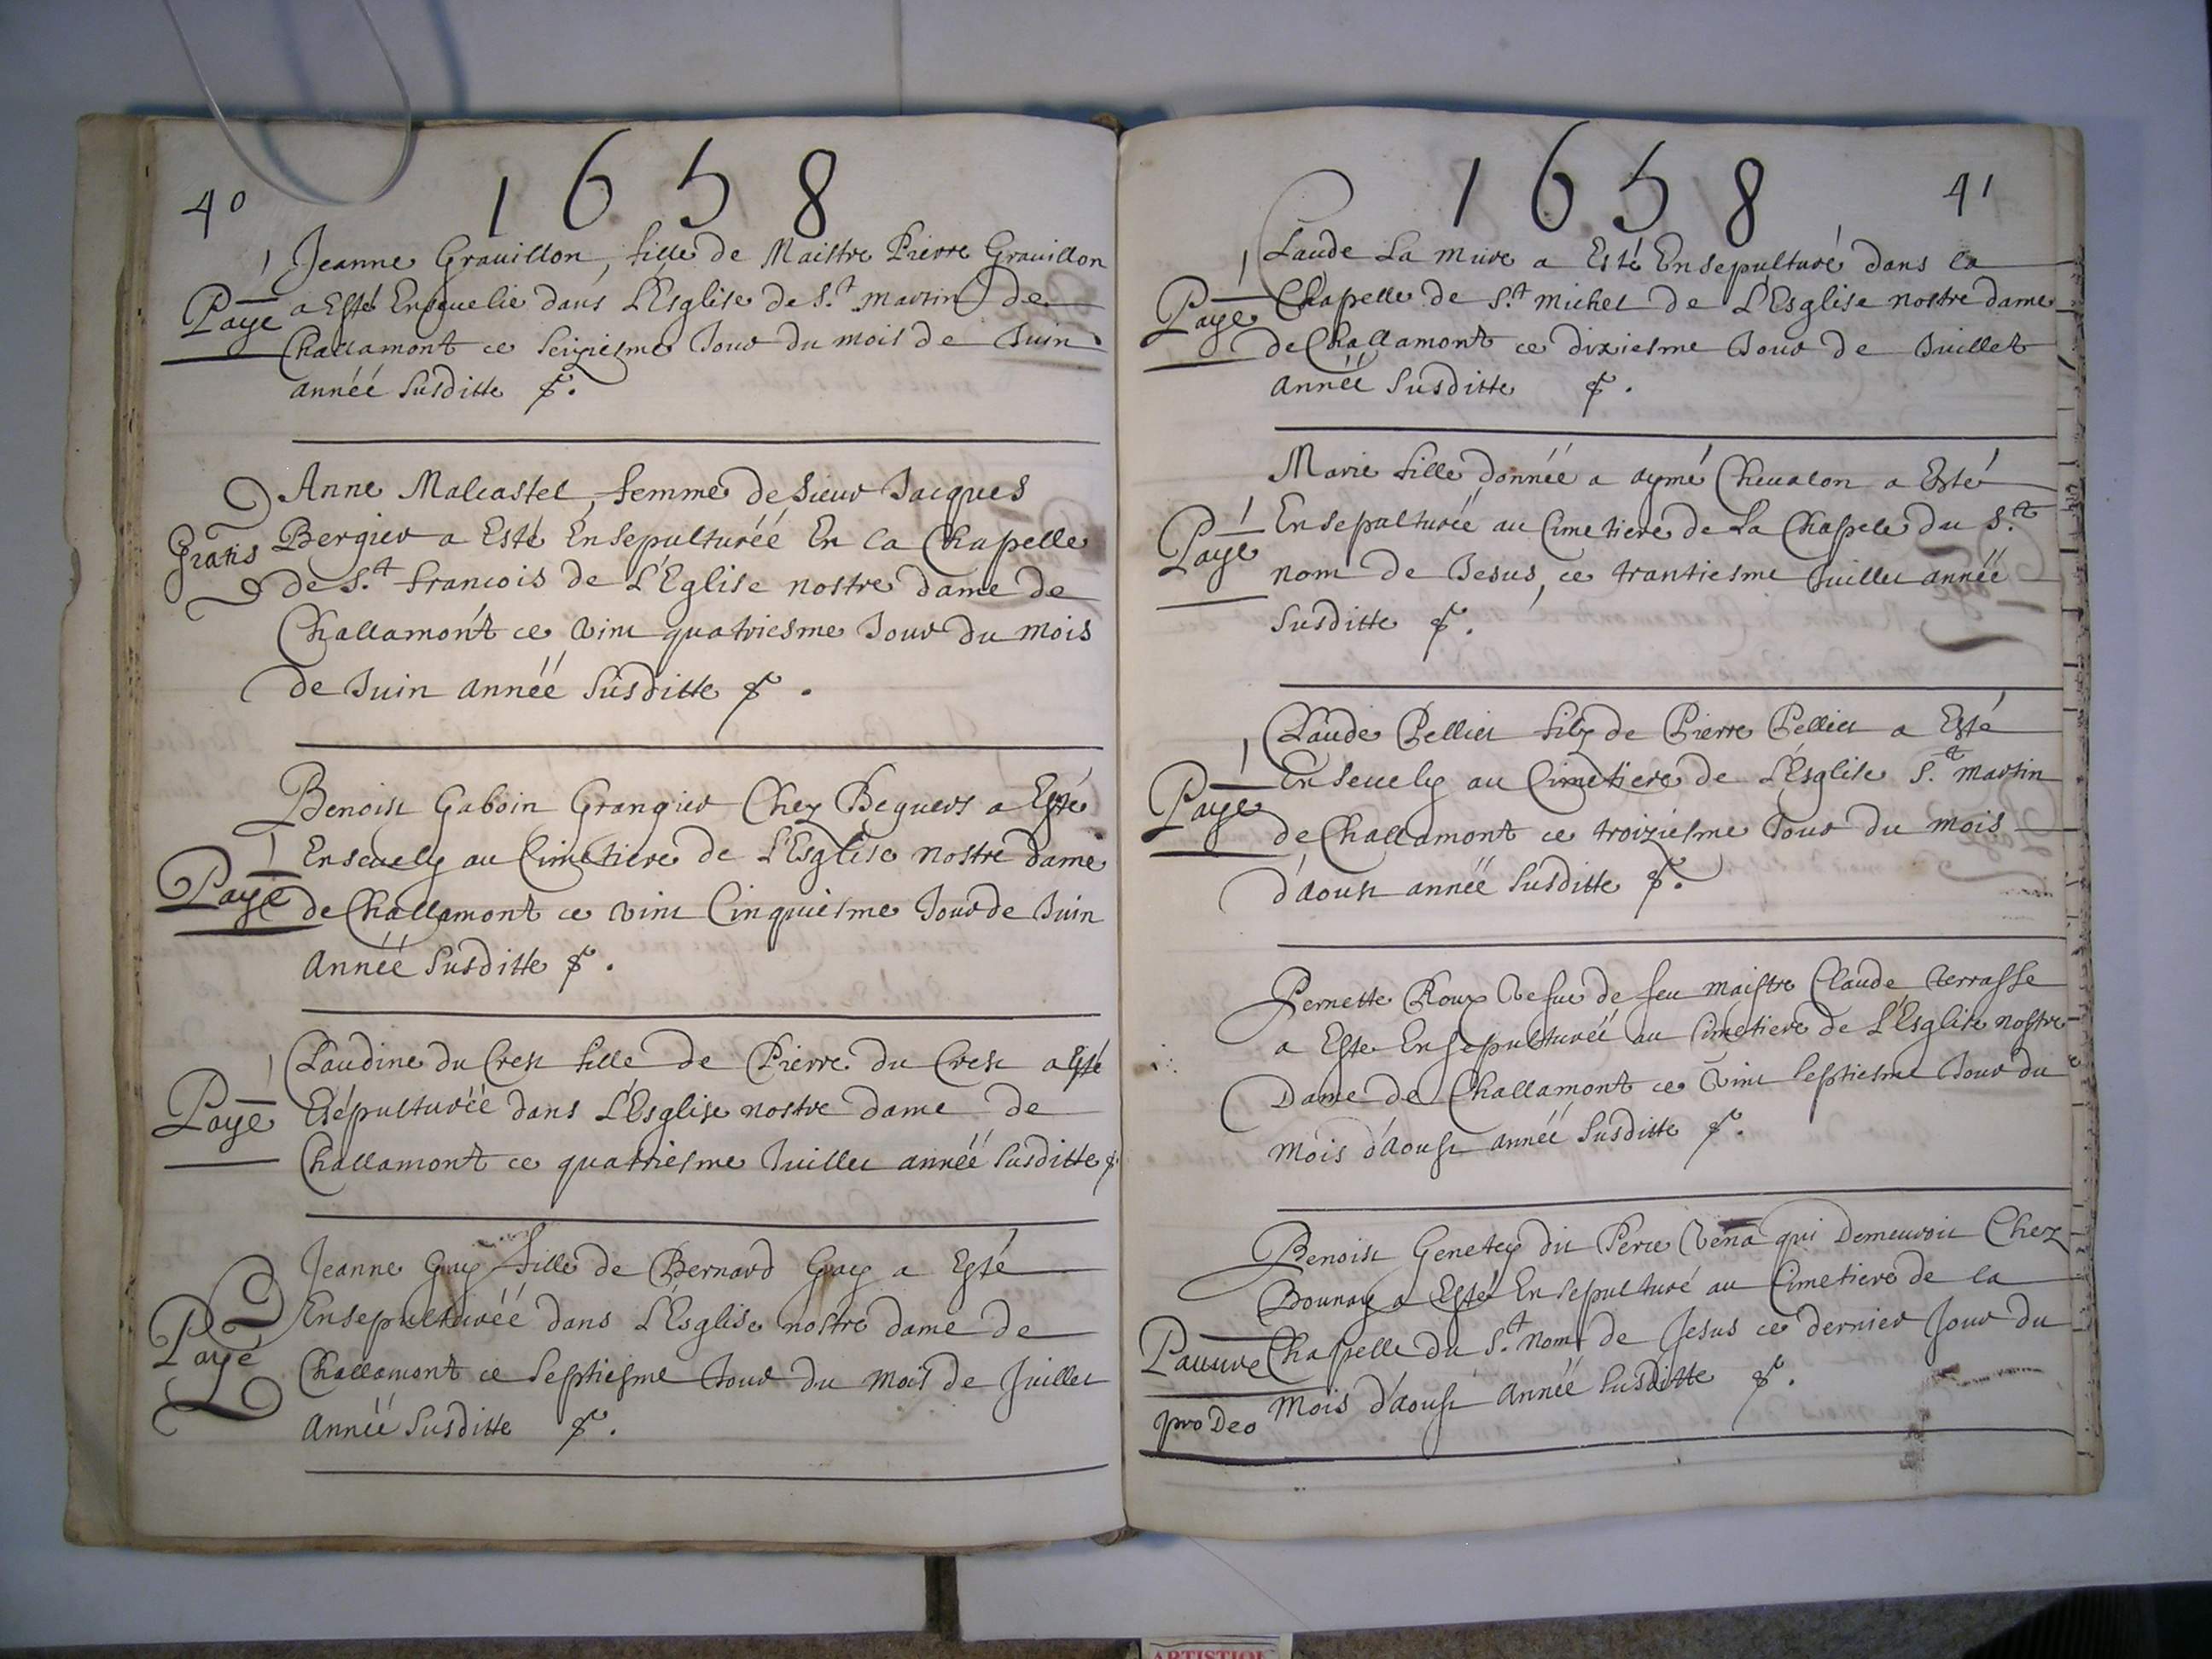 40
1658
Jeanne Grauillon, fille de Maistre Pierre Grauillon
Payé a Esté Enseuelie dans L'Esglise de S.t martin de
Challamont ce seiziesme Jour du mois de Juin
année susditte
Anne Malcastel, femme de sieur Jacques
Gratis Bergier a Esté Ensepulturéé En la Chapelle
de S.t francois de L'Eglise nostre dame de
Challamont ce vint quatriesme Jour du mois
de Juin année susditte
Benoist Gaboin Grangier Chez Beguers a Esté
Enseuely au Cimetiere de L'Esglise nostre dame
Payé de Challamont ce vint Cinquiesme Jour de Juin
Année susditte
Claudine du Crest fille de Pierre du Crest a Esté
Payé Esépulturéé dans L'Esglise nostre dame de
Challamont ce quatriesme Juillet année susditte
Jeanne Guy fille de Bernard Guy a Esté
Payé Ensepulturéé dans L'Esglise nostre dame de
Challamont ce septiesme Jour du mois de Juillet
Année susditte
1658
41
Claude La mure a Esté Ensepulturé dans la
Payé Chapelle de S.t michel de L'Esglise nostre dame
de Challamont ce dixiesme Jour de Juillet
année susditte
Marie fille donnéé a aymé Cheualon a Esté
Payé Ensepulturéé au Cimetiere de La Chapele du S.t
nom de Jesus, ce trantiesme Juillet année
susditte
Claude Pelliet filz de Pierre Pelliet a Esté
Payé Enseuely au Cimetiere de L'Esglise S.t martin
de Challamont ce troiziesme Jour du mois
d'aoust année susditte
Pernette Roux vesue de feu maistre Claude terrasse
a Esté Ensepulturéé au Cimetiere de L'Esglise nostre
Dame de Challamont ce vint septiesme Jour du
mois d'aoust année susditte
Benoist Genetey dit Perce Vena qui Demeuroit Chez
Bounay a Esté Ensepulturé au Cimetiere de la
Pauure Chapelle du S.t nom de Jesus ce dernier Jour du
pro Deo mois d'aoust année susditte